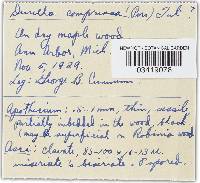 Durella compressa (Pers) Tul.
On dry maple wood
Ann Arbor, Mich.
Nov 5, 1929.
Leg: George B. Cummins
NEW YORK BOTANICAL GARDEN
03419078
Apothecium: .5-1 mm, thin, sessile
partially imbedded in the wood, black
(may be superficial on Robinia wood
Asci: clavate, 85-100 x 11-13 u.
uniseriate to biseriate. 8 spored.